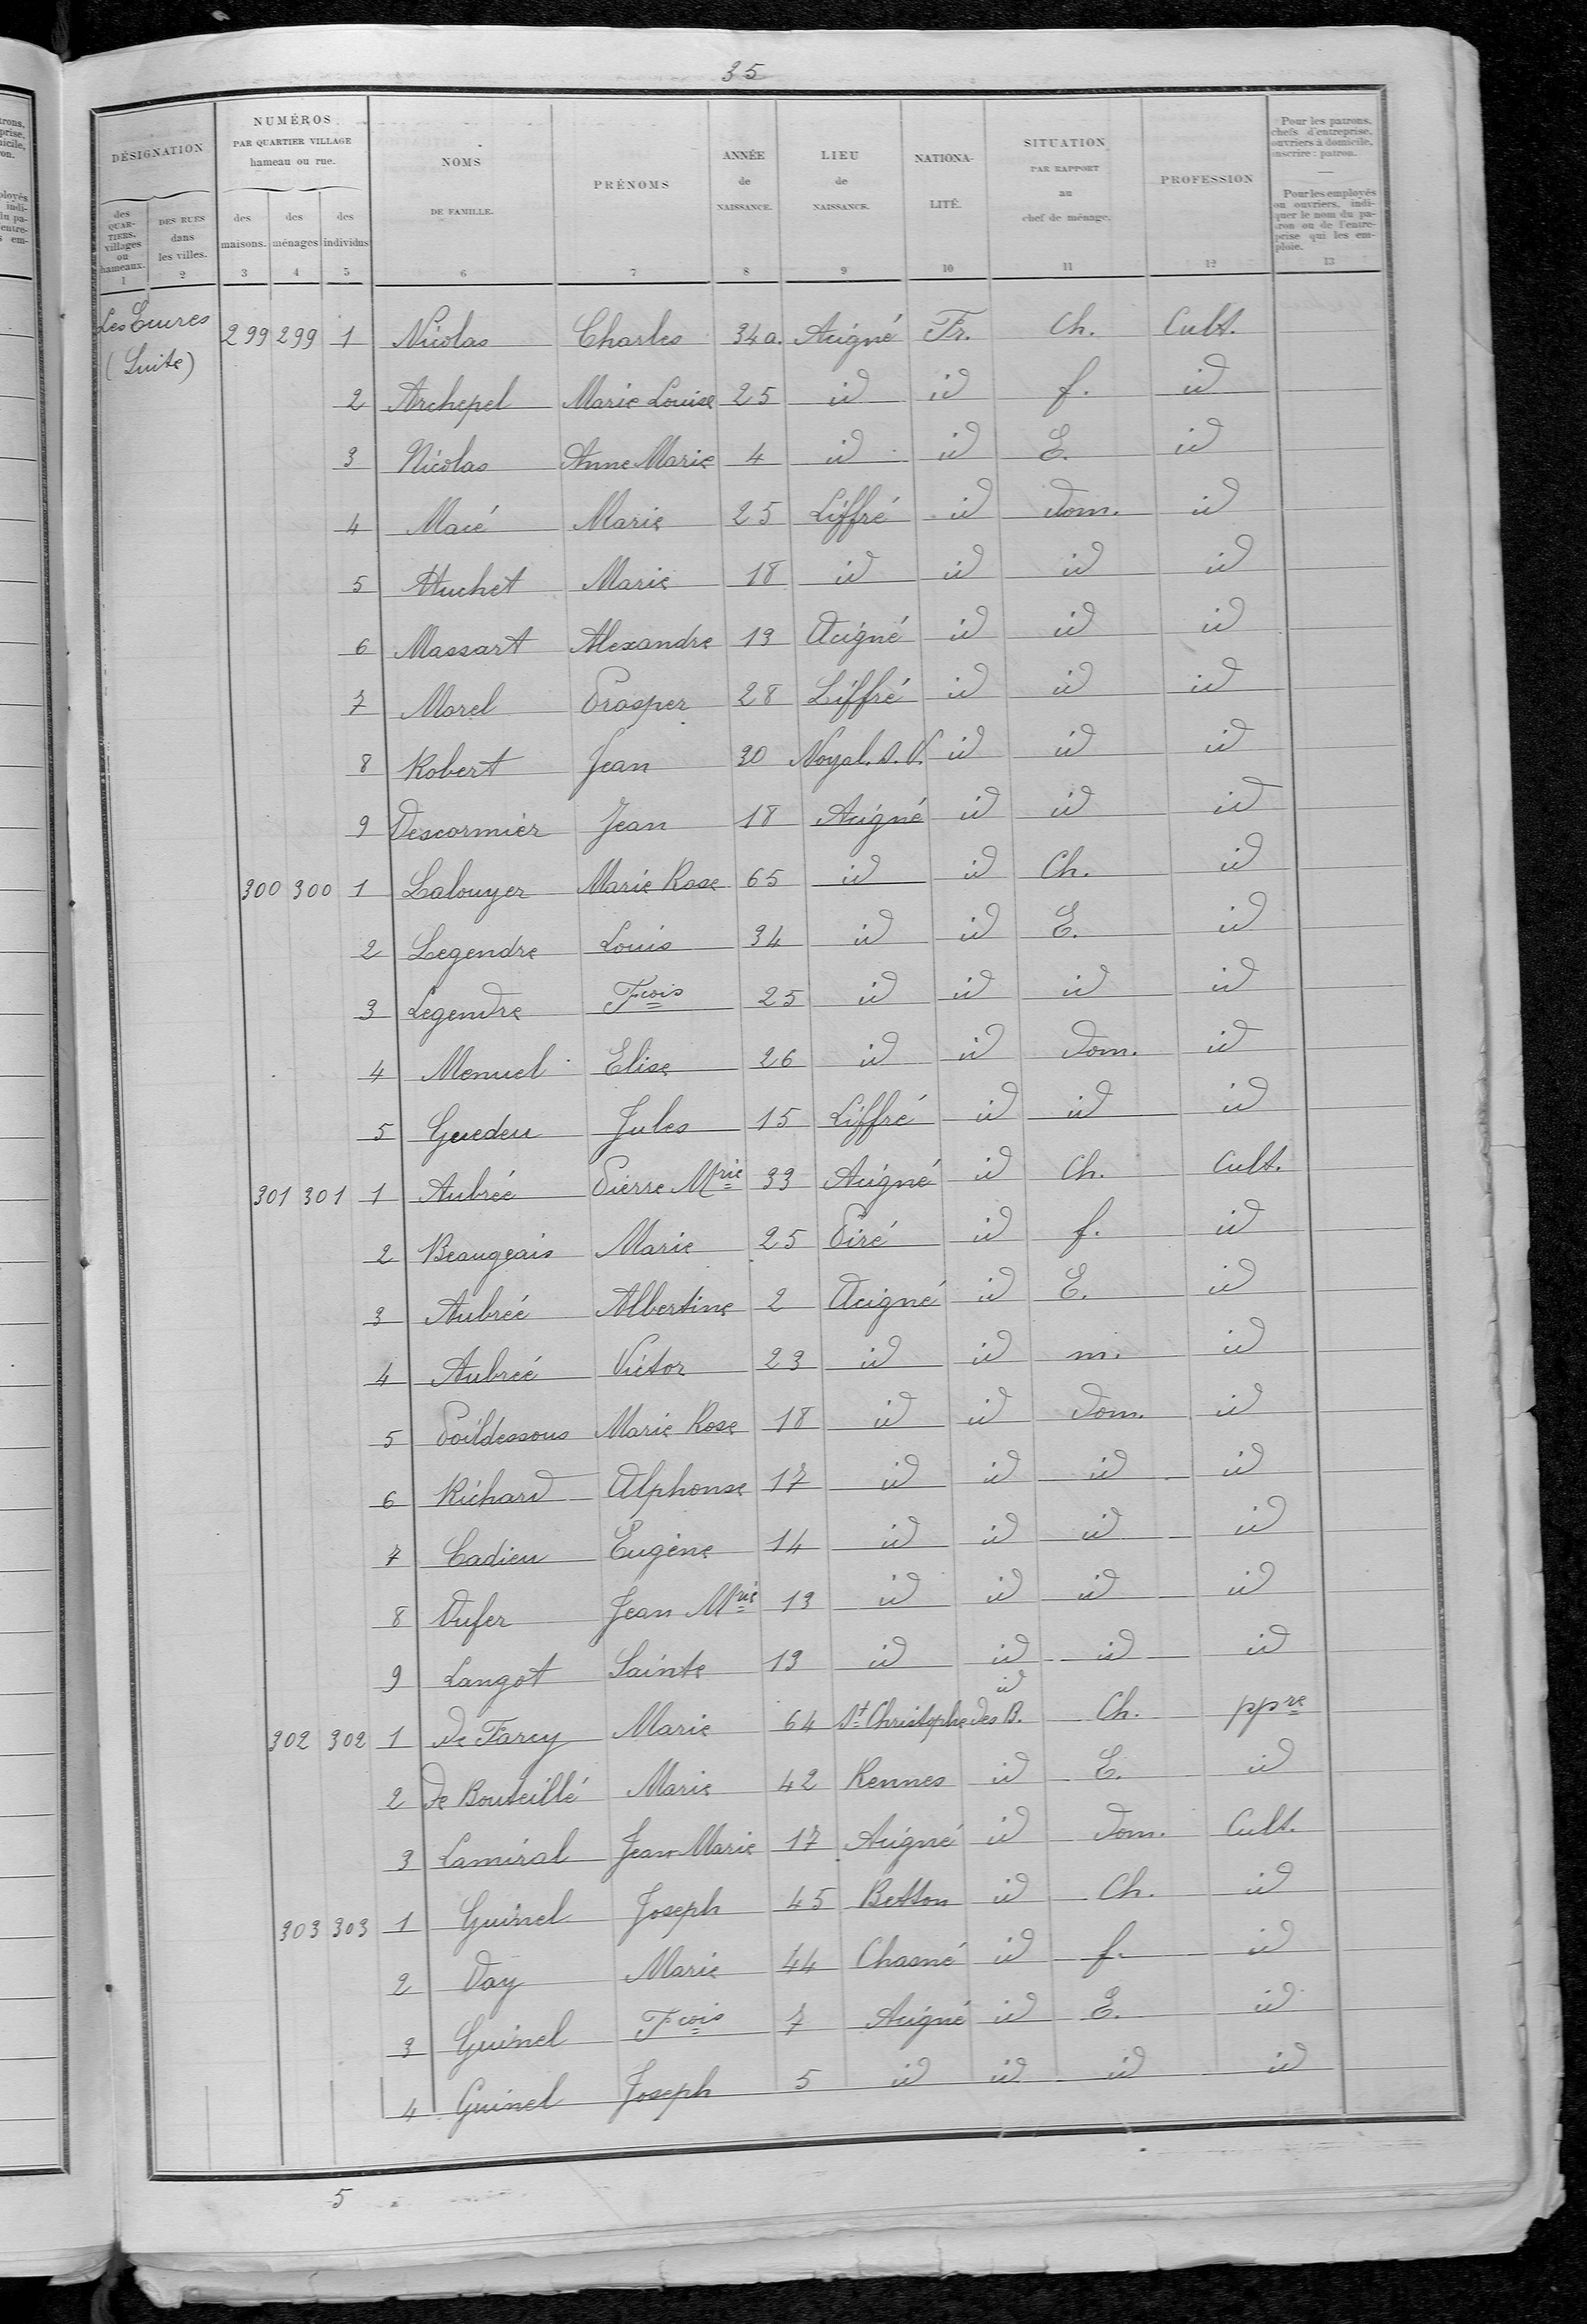 35
DÉSIGNATION
NUMÉROS
PAR QUARTIER VILLAGE
hameau ou rue.
NOMS
DE FAMILLE.
PRÉNOMS
ANNÉE
de
NAISSANCE.
LIEU
de
NAISSANCE.
NATIONA-
LITÉ.
SITUATION
PAR RAPPORT
au
chef de ménage.
PROFESSION
Pour les patrons,
chefs d'entreprise,
ouvriers à domicile,
inscrire : patron.
Pour les employés
ou ouvriers, indi-
quer le nom du pa-
tron ou de l'entre-
prise qui les em-
ploie.
des
QUAR-
TIERS,
villages
ou
hameaux.
DES RUES
dans
les villes.
des
maisons.
des
ménages
des
individus
1 2 3 4 5 6 7 8 9 10 11 12 13
Les Eures
(Suite)
299 299 1 Nicolas Charles 34 a. Acigné Fr. Ch. Cult.
2 Archepel Marie Louise 25 id id f. id
3 Nicolas Anne Marie 4 id id E. id
4 Macé Marie 25 Liffré id dom. id
5 Huchet Marie 18 id id id id
6 Massart Alexandre 13 Acigné id id id
7 Morel Prosper 28 Liffré id id id
8 Robert Jean 30 Noyal. s. V. id id id
9 Descormier Jean 18 Acigné id id id
300 300 1 Lalouyer Marie Rose 65 id id Ch. id
2 Legendre Louis 34 id id E. id
3 Legendre Fcois 25 id id id id
4 Menuel Elise 26 id id dom. id
5 Guedeu Jules 15 Liffré id id id
301 301 1 Aubrée Pierre Mrie 33 Acigné id Ch. Cult.
2 Beaugeais Marie 25 Piré id f. id
3 Aubrée Albertine 2 Acigné id E. id
4 Aubrée Victor 23 id id m. id
5 Poildessous Marie Rose 18 id id dom. id
6 Richard Alphonse 17 id id id id
7 Cadieu Eugène 14 id id id id
8 Dufer Jean Mrie 13 id id id id
9 Langot Sainte 13 id id id id
302 302 1 de Farcy Marie 64 St Christophe des B. id Ch. ppre
2 de Bouteillé Marie 42 Rennes id E. id
3 Lamiral Jean Marie 17 Acigné id dom. Cult.
303 303 1 Guinel Joseph 45 Betton id Ch. id
2 Day Marie 44 Chasné id f. id
3 Guinel Fcois 7 Acigné id E. id
4 Guinel Joseph 5 id id id id
5